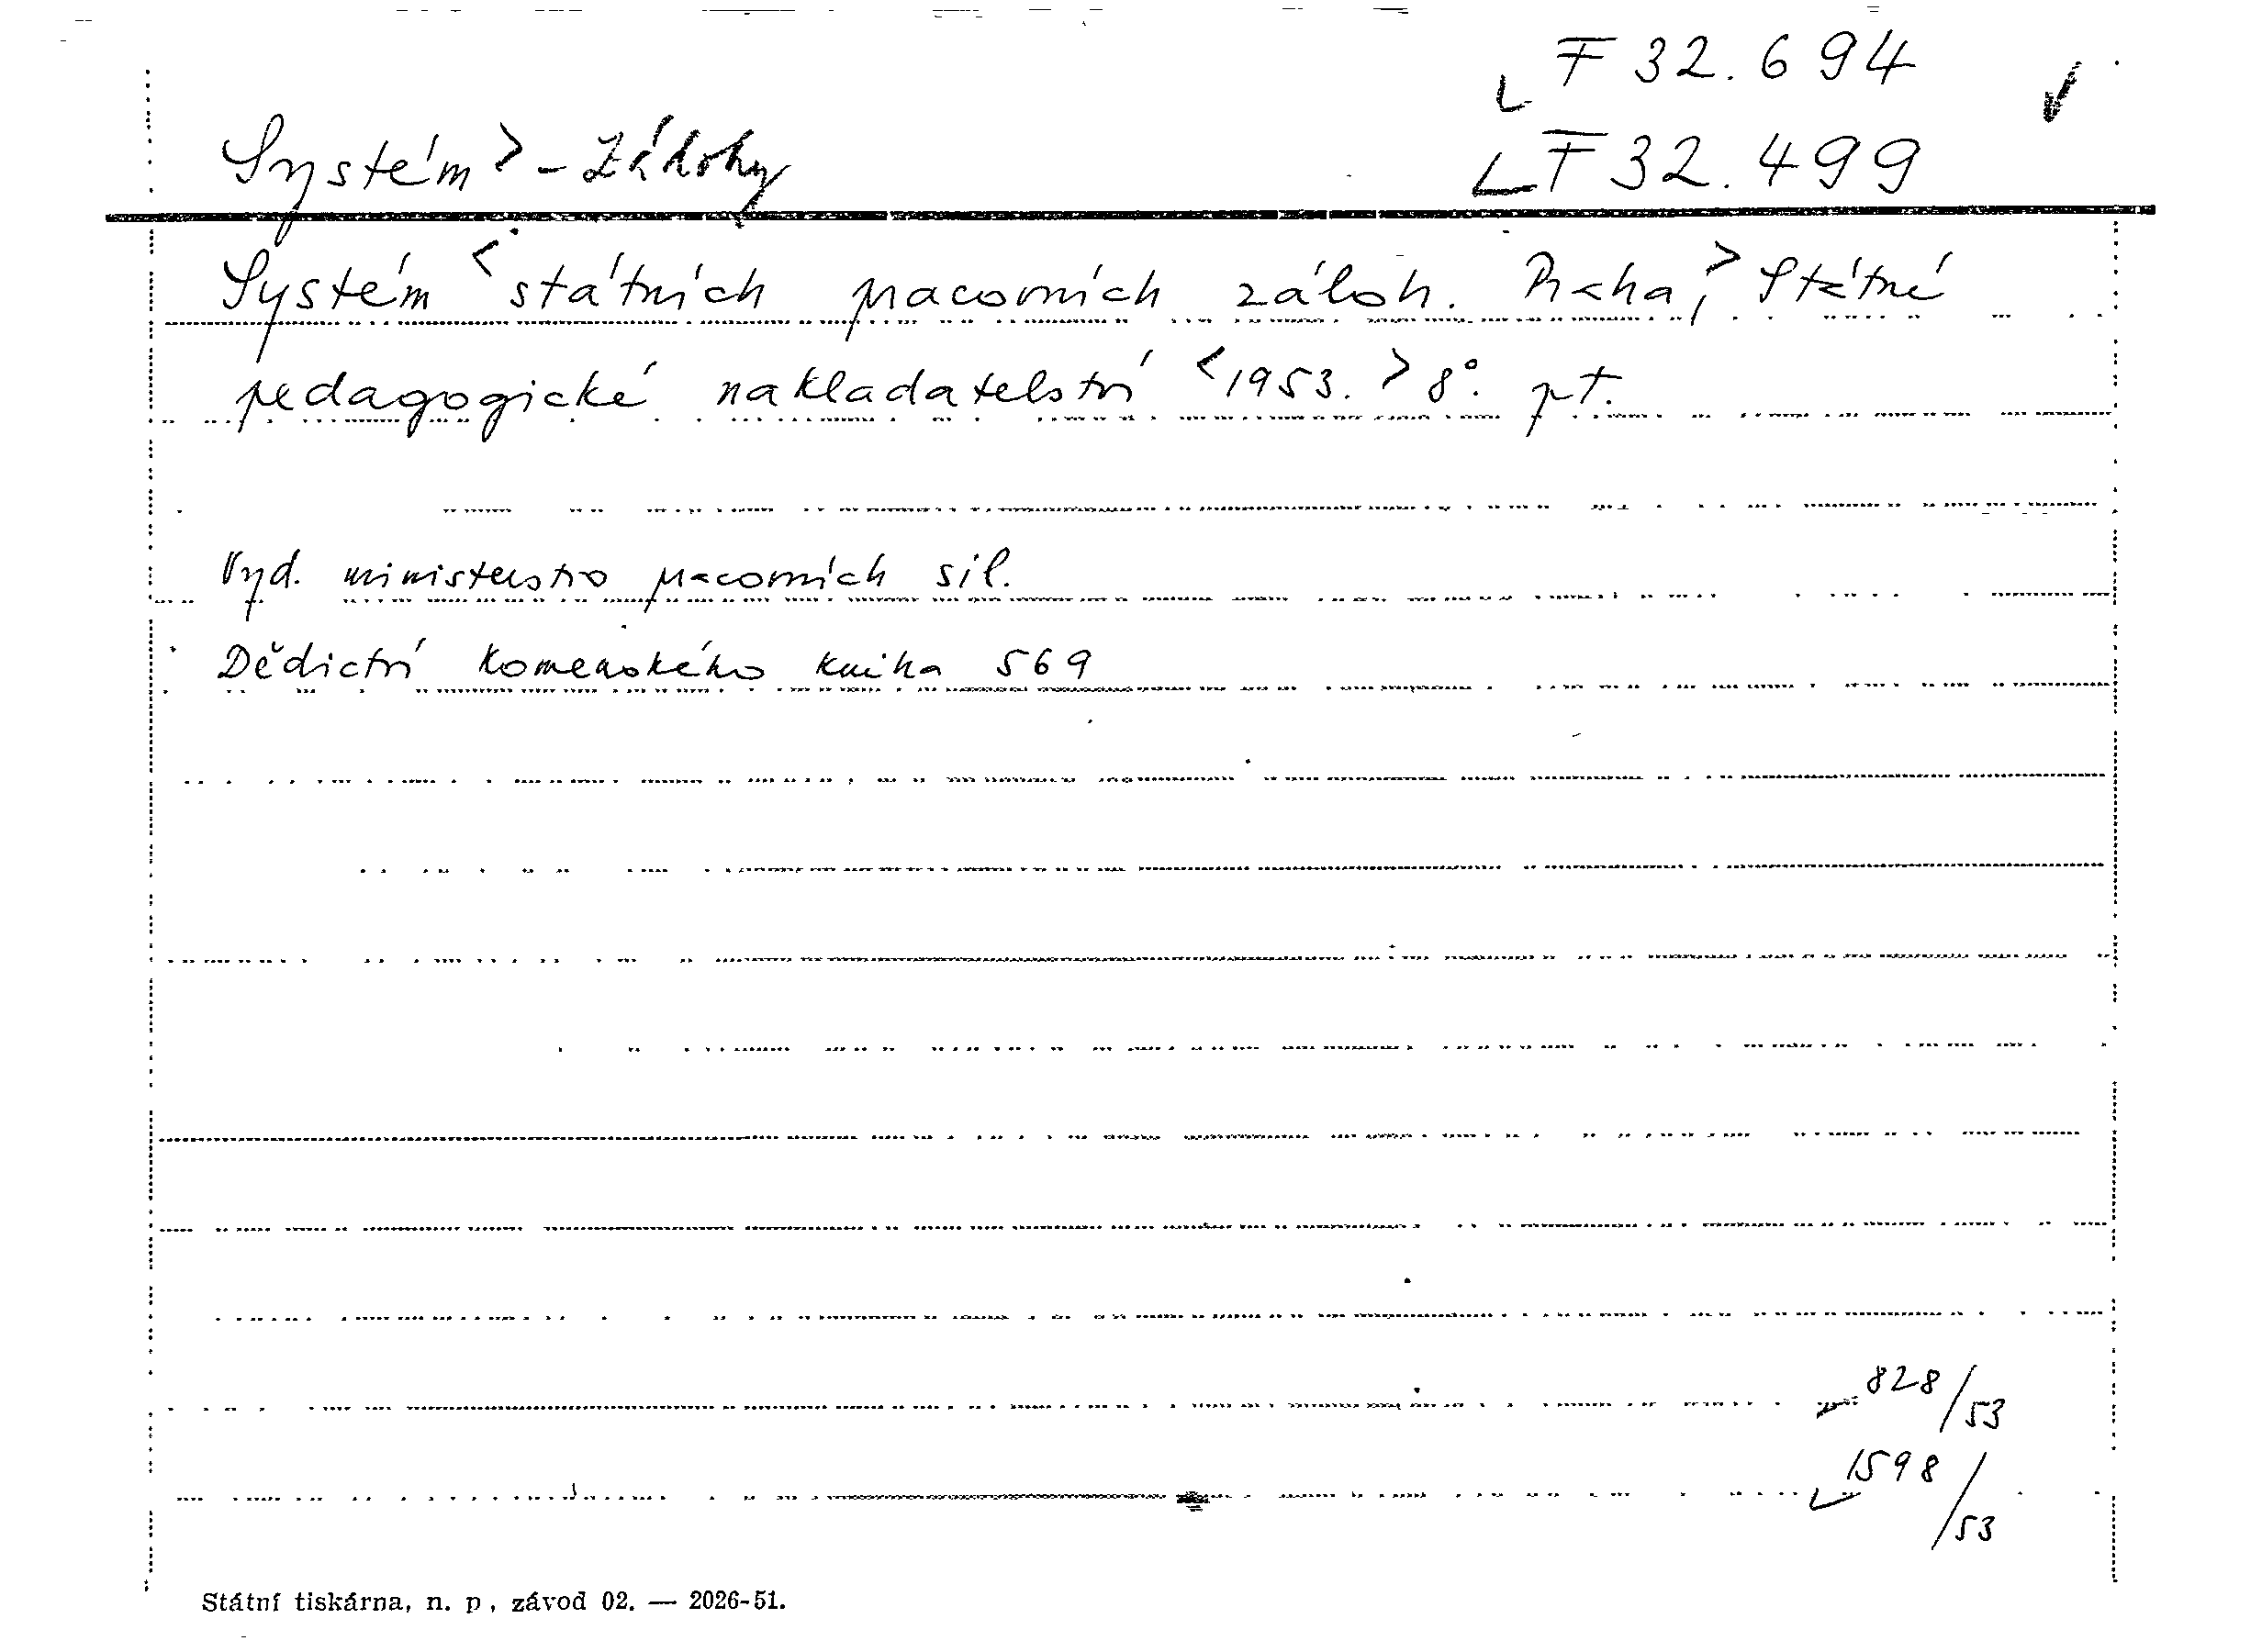 F 32.694
F 32.499
Systém > - Zálohy
Systém < státních pracovních záloh. Praha, > Státní
pedagogické nakladatelství < 1953. > 8°. pt.
Vyd. ministerstvo pracovních sil.
Dědictví Komenského kniha 569
828/53
1598/53
Státní tiskárna, n. p, závod 02. — 2026-51.